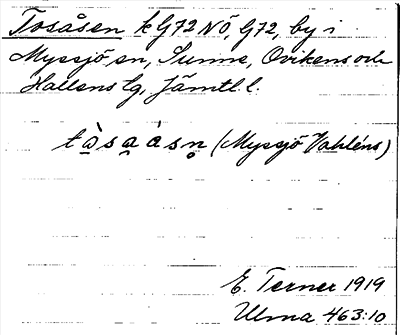 Tosåsen k G72 NÖ, G72, by i
Myssjö sn, Sunne, Ovikens och
Hallens tg, Jämtl. l.
tà̱sa̱ásn̥ (Myssjö Vahléns)
E. Terner 1919
Ulma 463:10